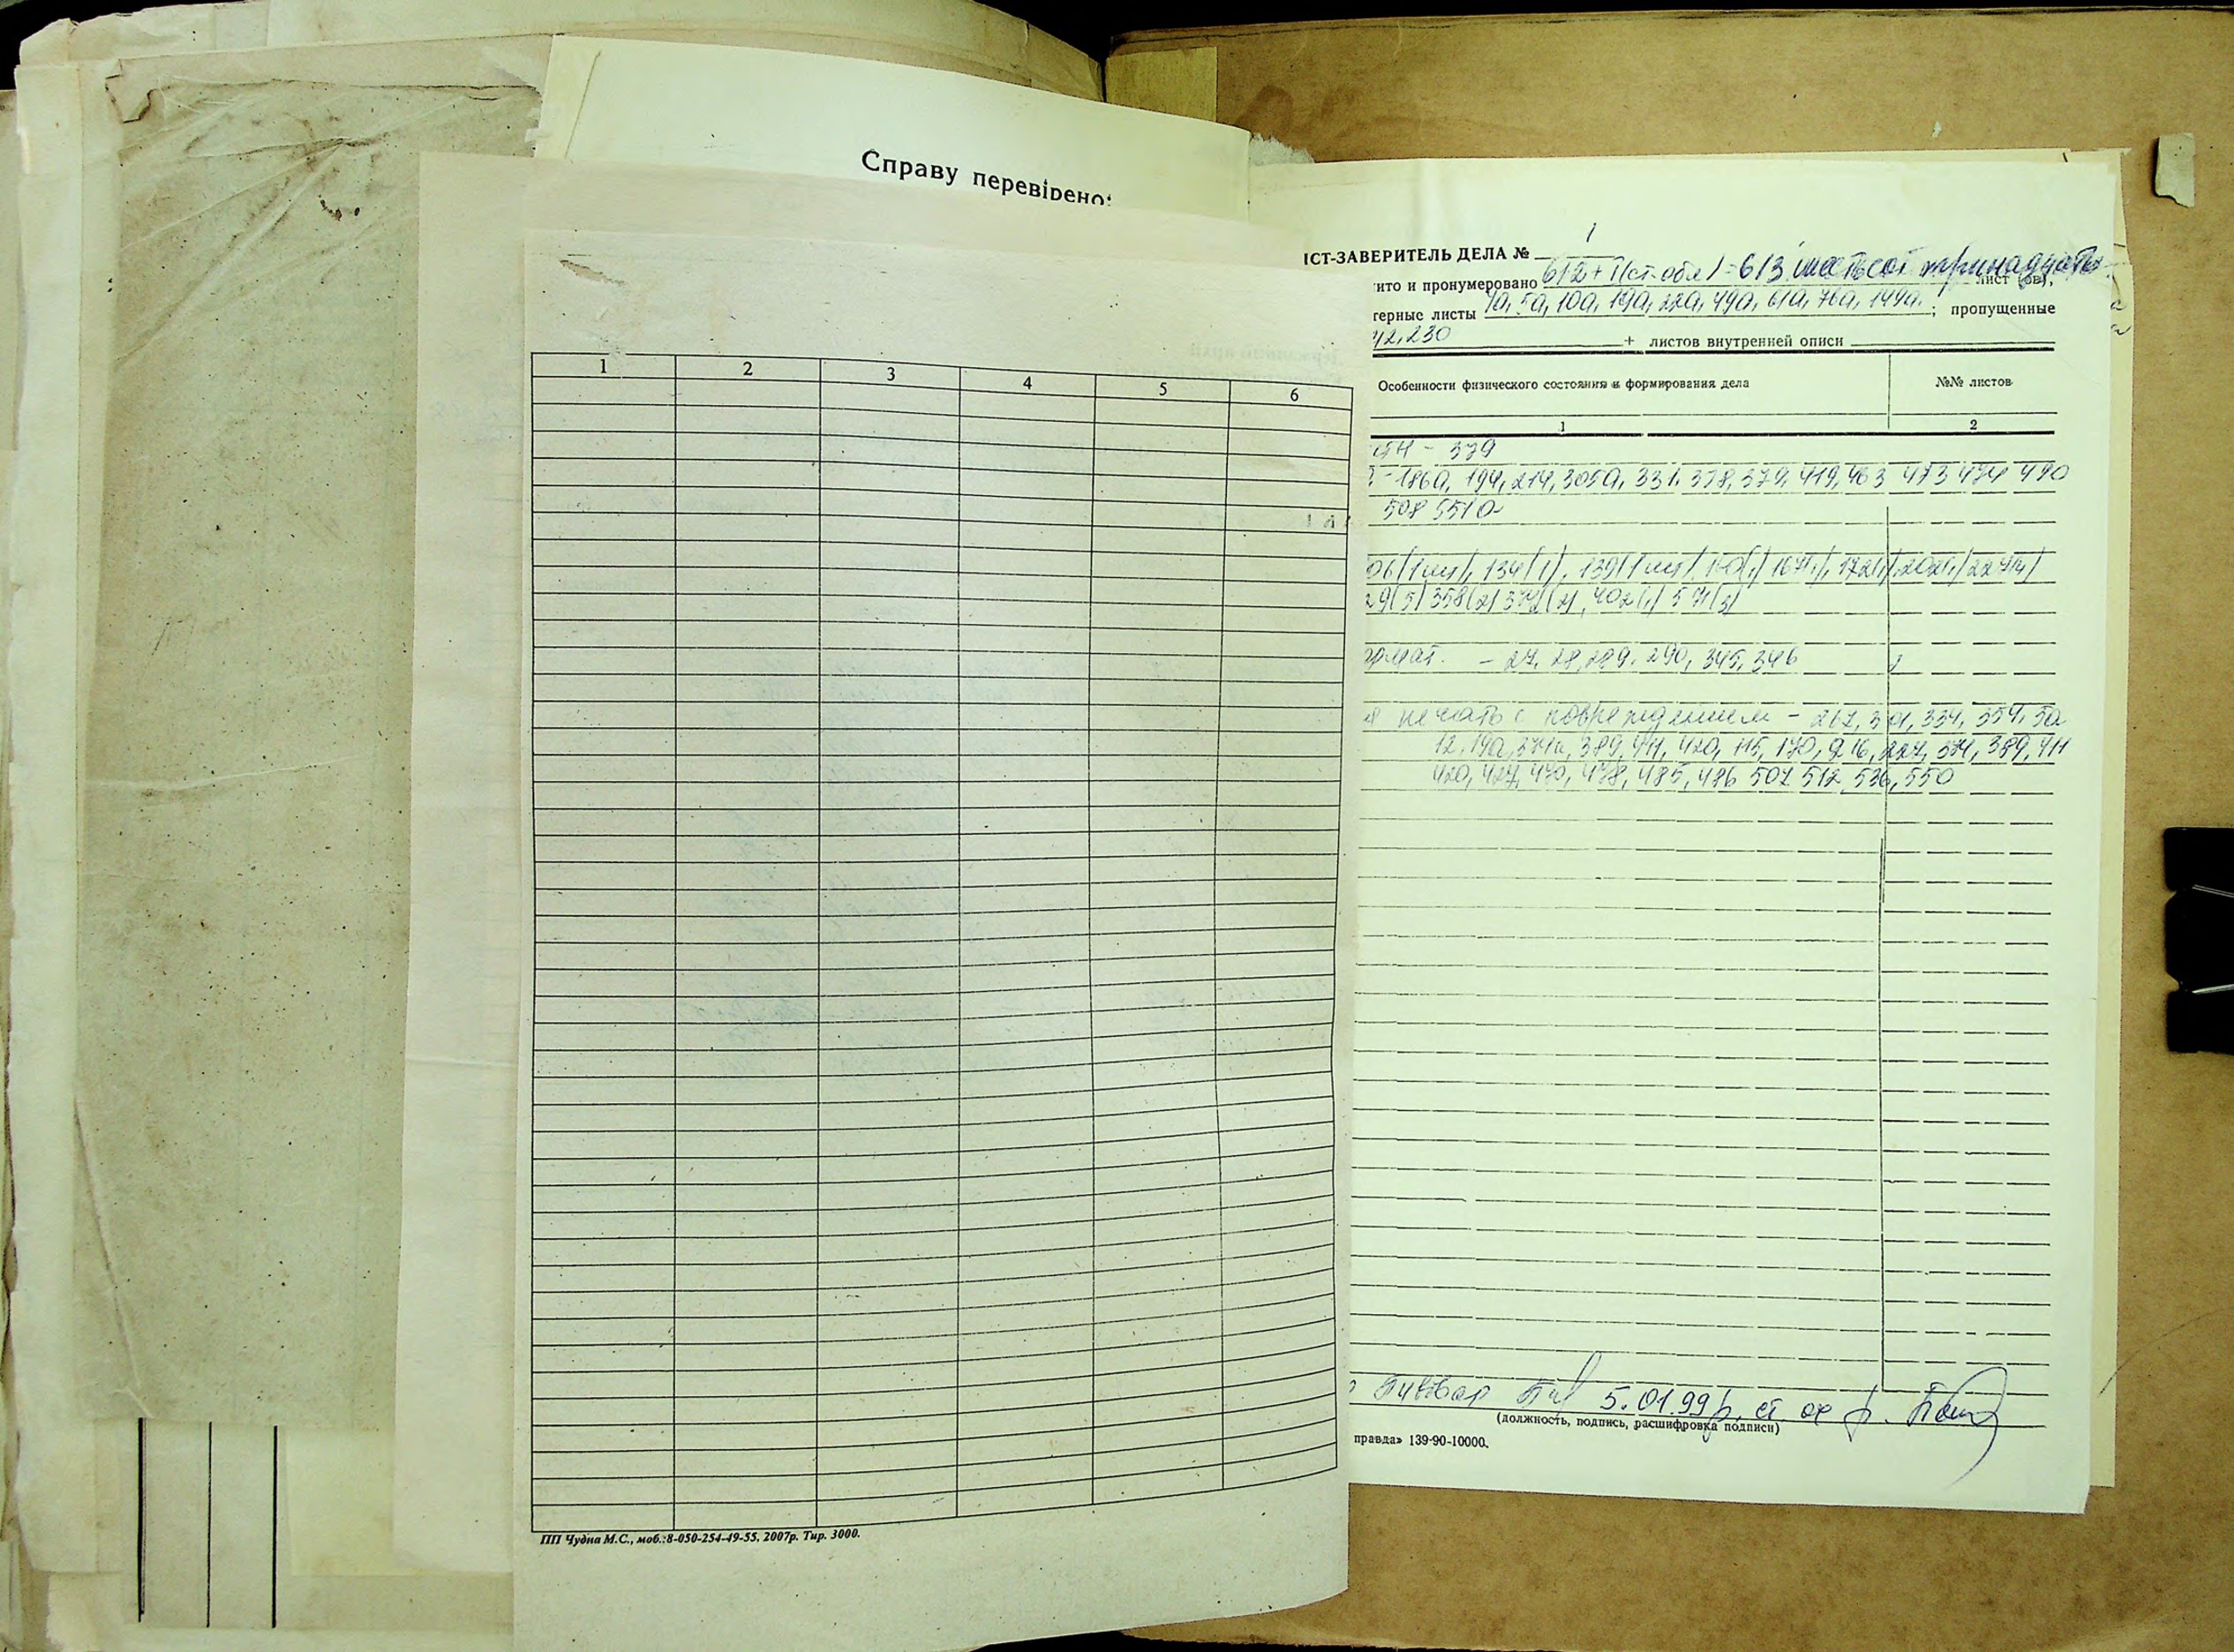 Справу перевірено:
1 2 3 4 5 6
ПП Чудна М.С., моб.:8-050-254-49-55, 2007р. Тир. 3000.
ІСТ-ЗАВЕРИТЕЛЬ ДЕЛА № 1
ито и пронумеровано 612+1(ст.обл)=613 шестьсот тринадцать лист (ов),
терные листы 4а, 5а, 10а, 19а, 22а, 49а, 61а, 76а, 149а. ; пропущенные
42,230 + листов внутренней описи
Особенности физического состояния и формирования дела №№ листов
1 2
- 379
- 186а, 194, 214, 305а, 331, 378, 379, 419, 463 473 474 490
508 551а
06(1шт), 134(1), 139(1шт)
9(5) 358(2) 374(2), 402(1) 571(3)
ормат. - 27, 28, 289, 290, 345, 346
я печать с повреждением - 267, 301, 334, 354, 5а
12, 19а, 371а, 389, 411, 420, 115, 170, 216, 227, 371, 389, 411
420, 427, 470, 478, 485, 486 507 512, 536, 550
5.01.99р. ст. хр.
(должность, подпись, расшифровка подписи)
правда» 139-90-10000.